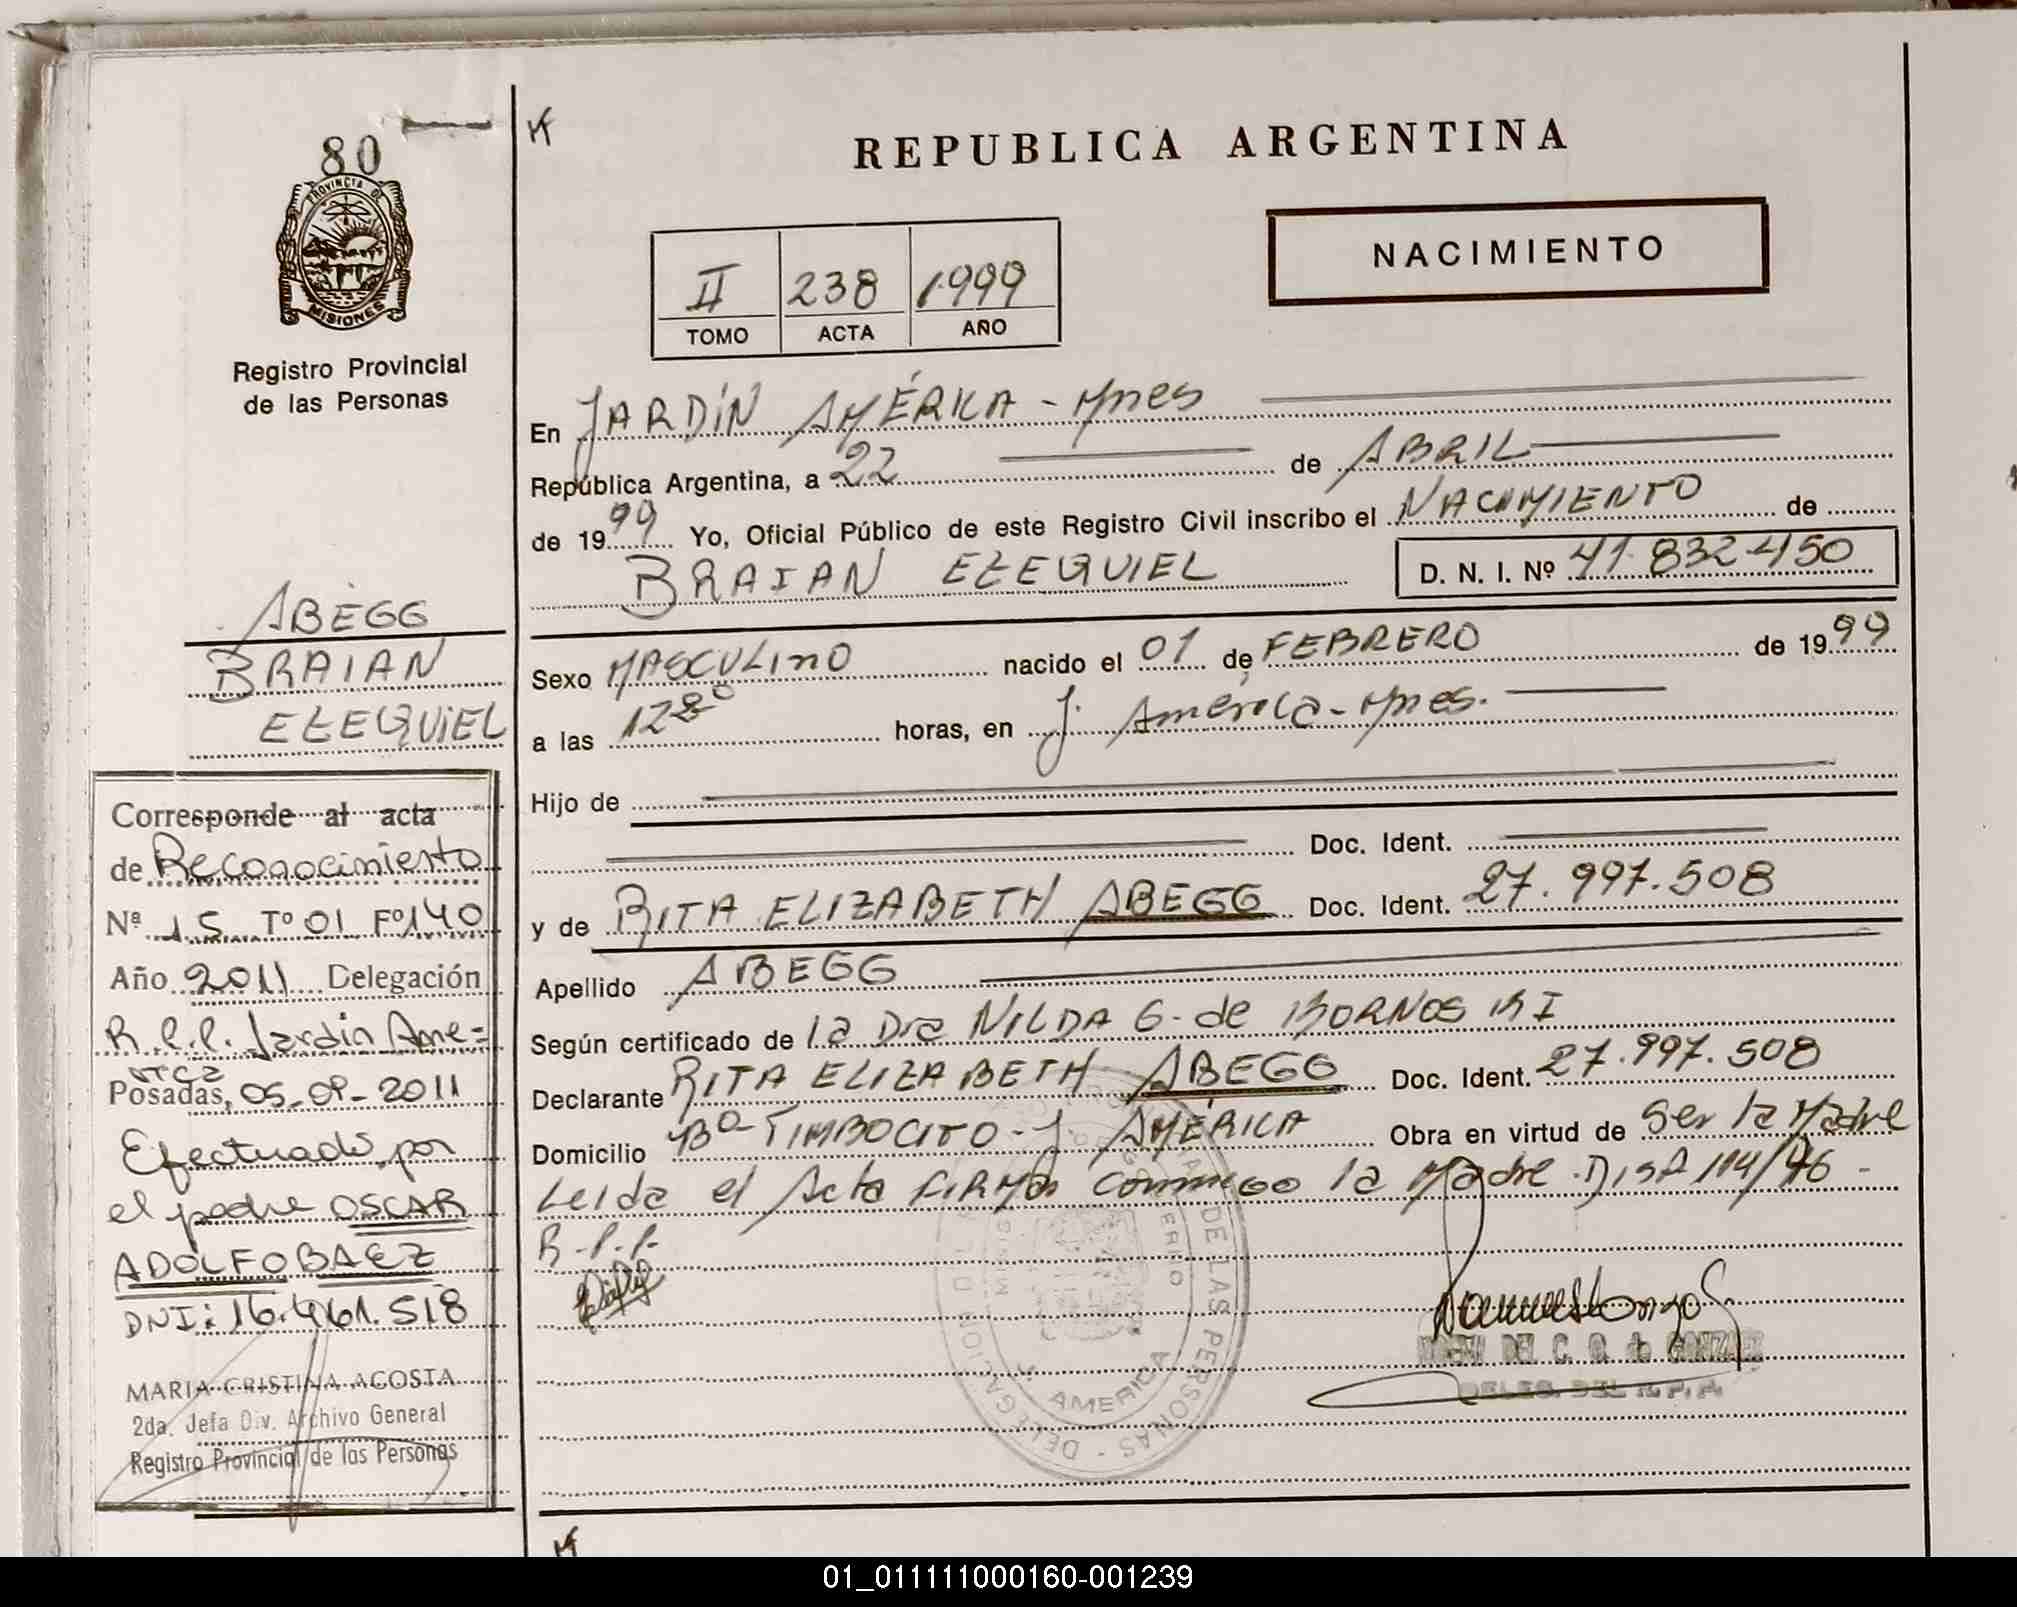 80
PROVINCIA DE
MISIONES
Registro Provincial
de las Personas
ABEGG
BRAIAN
EZEQUIEL
Corresponde al acta
de Reconocimiento
Nº 15 Tº 01 Fº 140
Año 2011 Delegación
R.P.P. Jardin Ame=
rica
Posadas, 05-09-2011
Efectuado por
el padre OSCAR
ADOLFO BAEZ
DNI: 16.461.518
MARIA CRISTINA ACOSTA
2da. Jefa Div. Archivo General
Registro Provincial de las Personas
REPUBLICA ARGENTINA
NACIMIENTO
II 238 1999
TOMO ACTA AÑO
En JARDÍN AMÉRICA - Mnes
República Argentina, a 22 de ABRIL
de 1999 Yo, Oficial Público de este Registro Civil inscribo el NACIMIENTO de
BRAIAN EZEQUIEL D. N. I. Nº 41.832.450
Sexo MASCULINO nacido el 01 de FEBRERO de 1999
a las 12 horas, en J. América - Mnes.
Hijo de
Doc. Ident.
y de RITA ELIZABETH ABEGG Doc. Ident. 27.997.508
Apellido ABEGG
Según certificado de la Dra NILDA G. de
Declarante RITA ELIZABETH ABEGG Doc. Ident. 27.997.508
Domicilio Bº TIMBOCITO - J. AMÉRICA Obra en virtud de Ser la Madre
Leida el Acta FIRMA conmigo la Madre. DISP. 114/76 -
R.P.P.
DE LAS PERSONAS - DELEGACION
AMERICA
DEL C. Q. de GONZALEZ
DELEG. DEL R. P. P.
01_011111000160-001239